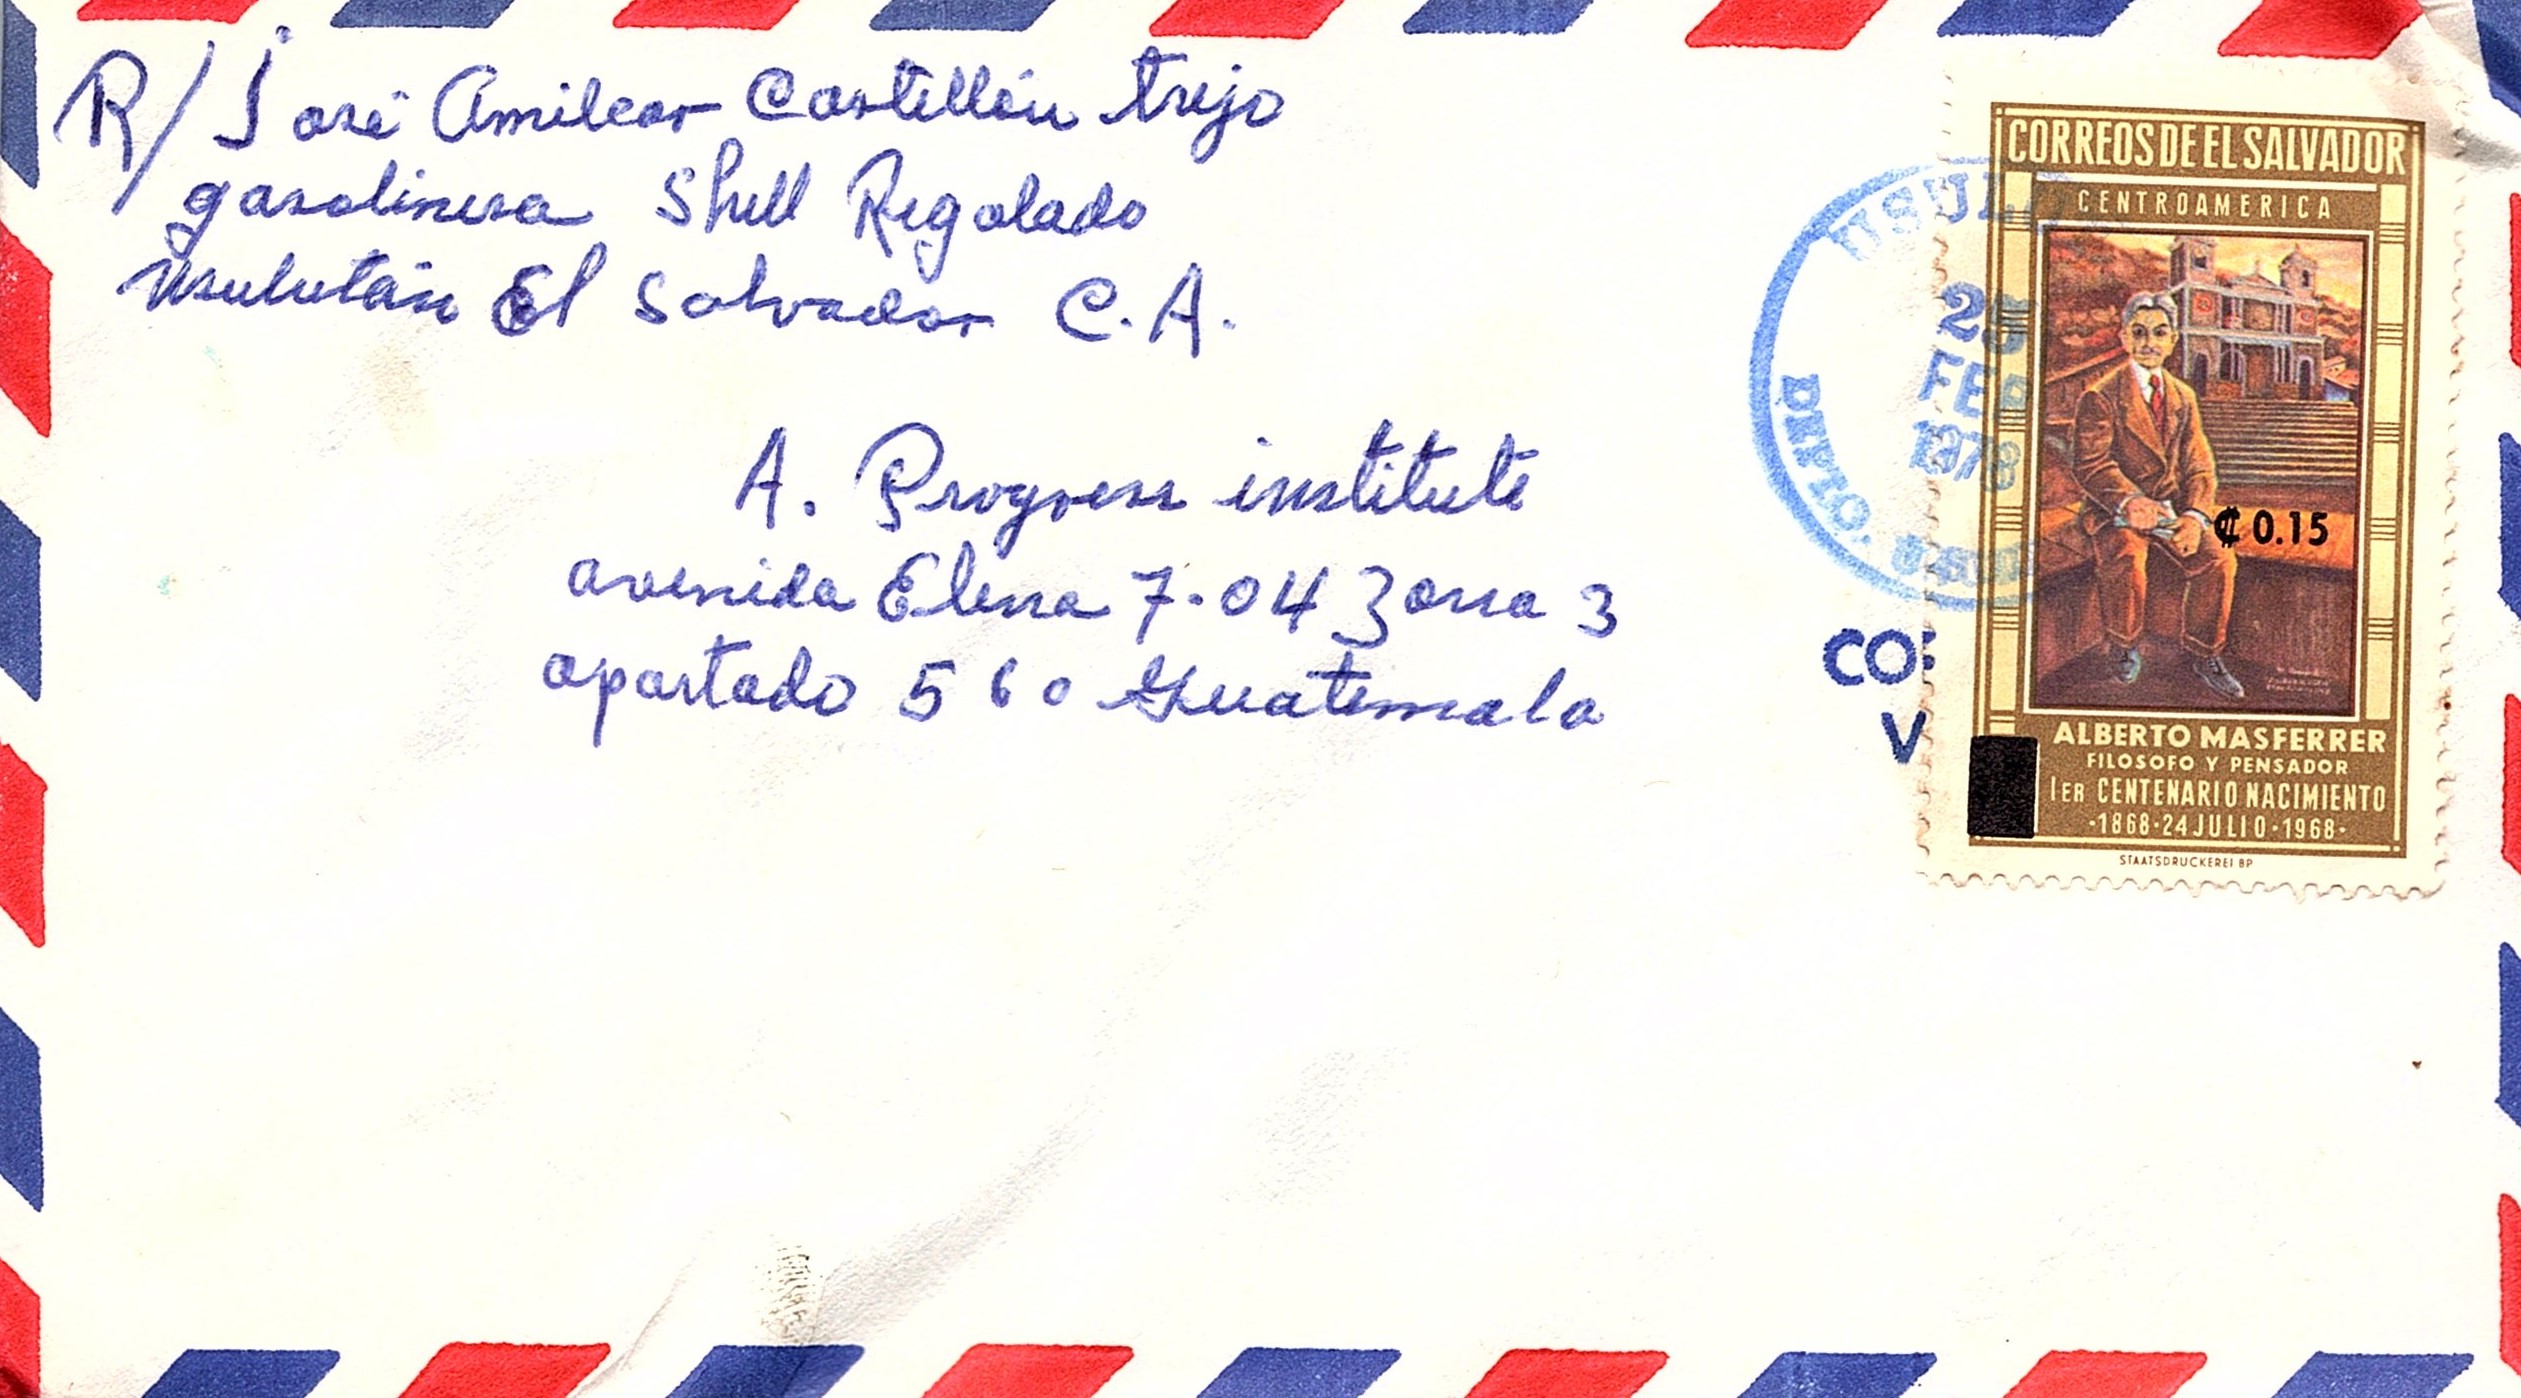 R/ José Amilcar Castillón trejo
gasolinera Shell Regalado
Usulután El Salvador C.A.
A. Progress institute
avenida Elena 7-04 Zona 3
apartado 560 Guatemala
USULU
25
FEB
1978
DEPTO.
CO
V
CORREOS DE EL SALVADOR
CENTROAMERICA
₡ 0.15
ALBERTO MASFERRER
FILOSOFO Y PENSADOR
1ER CENTENARIO NACIMIENTO
·1868·24 JULIO·1968·
STAATSDRUCKEREI BP